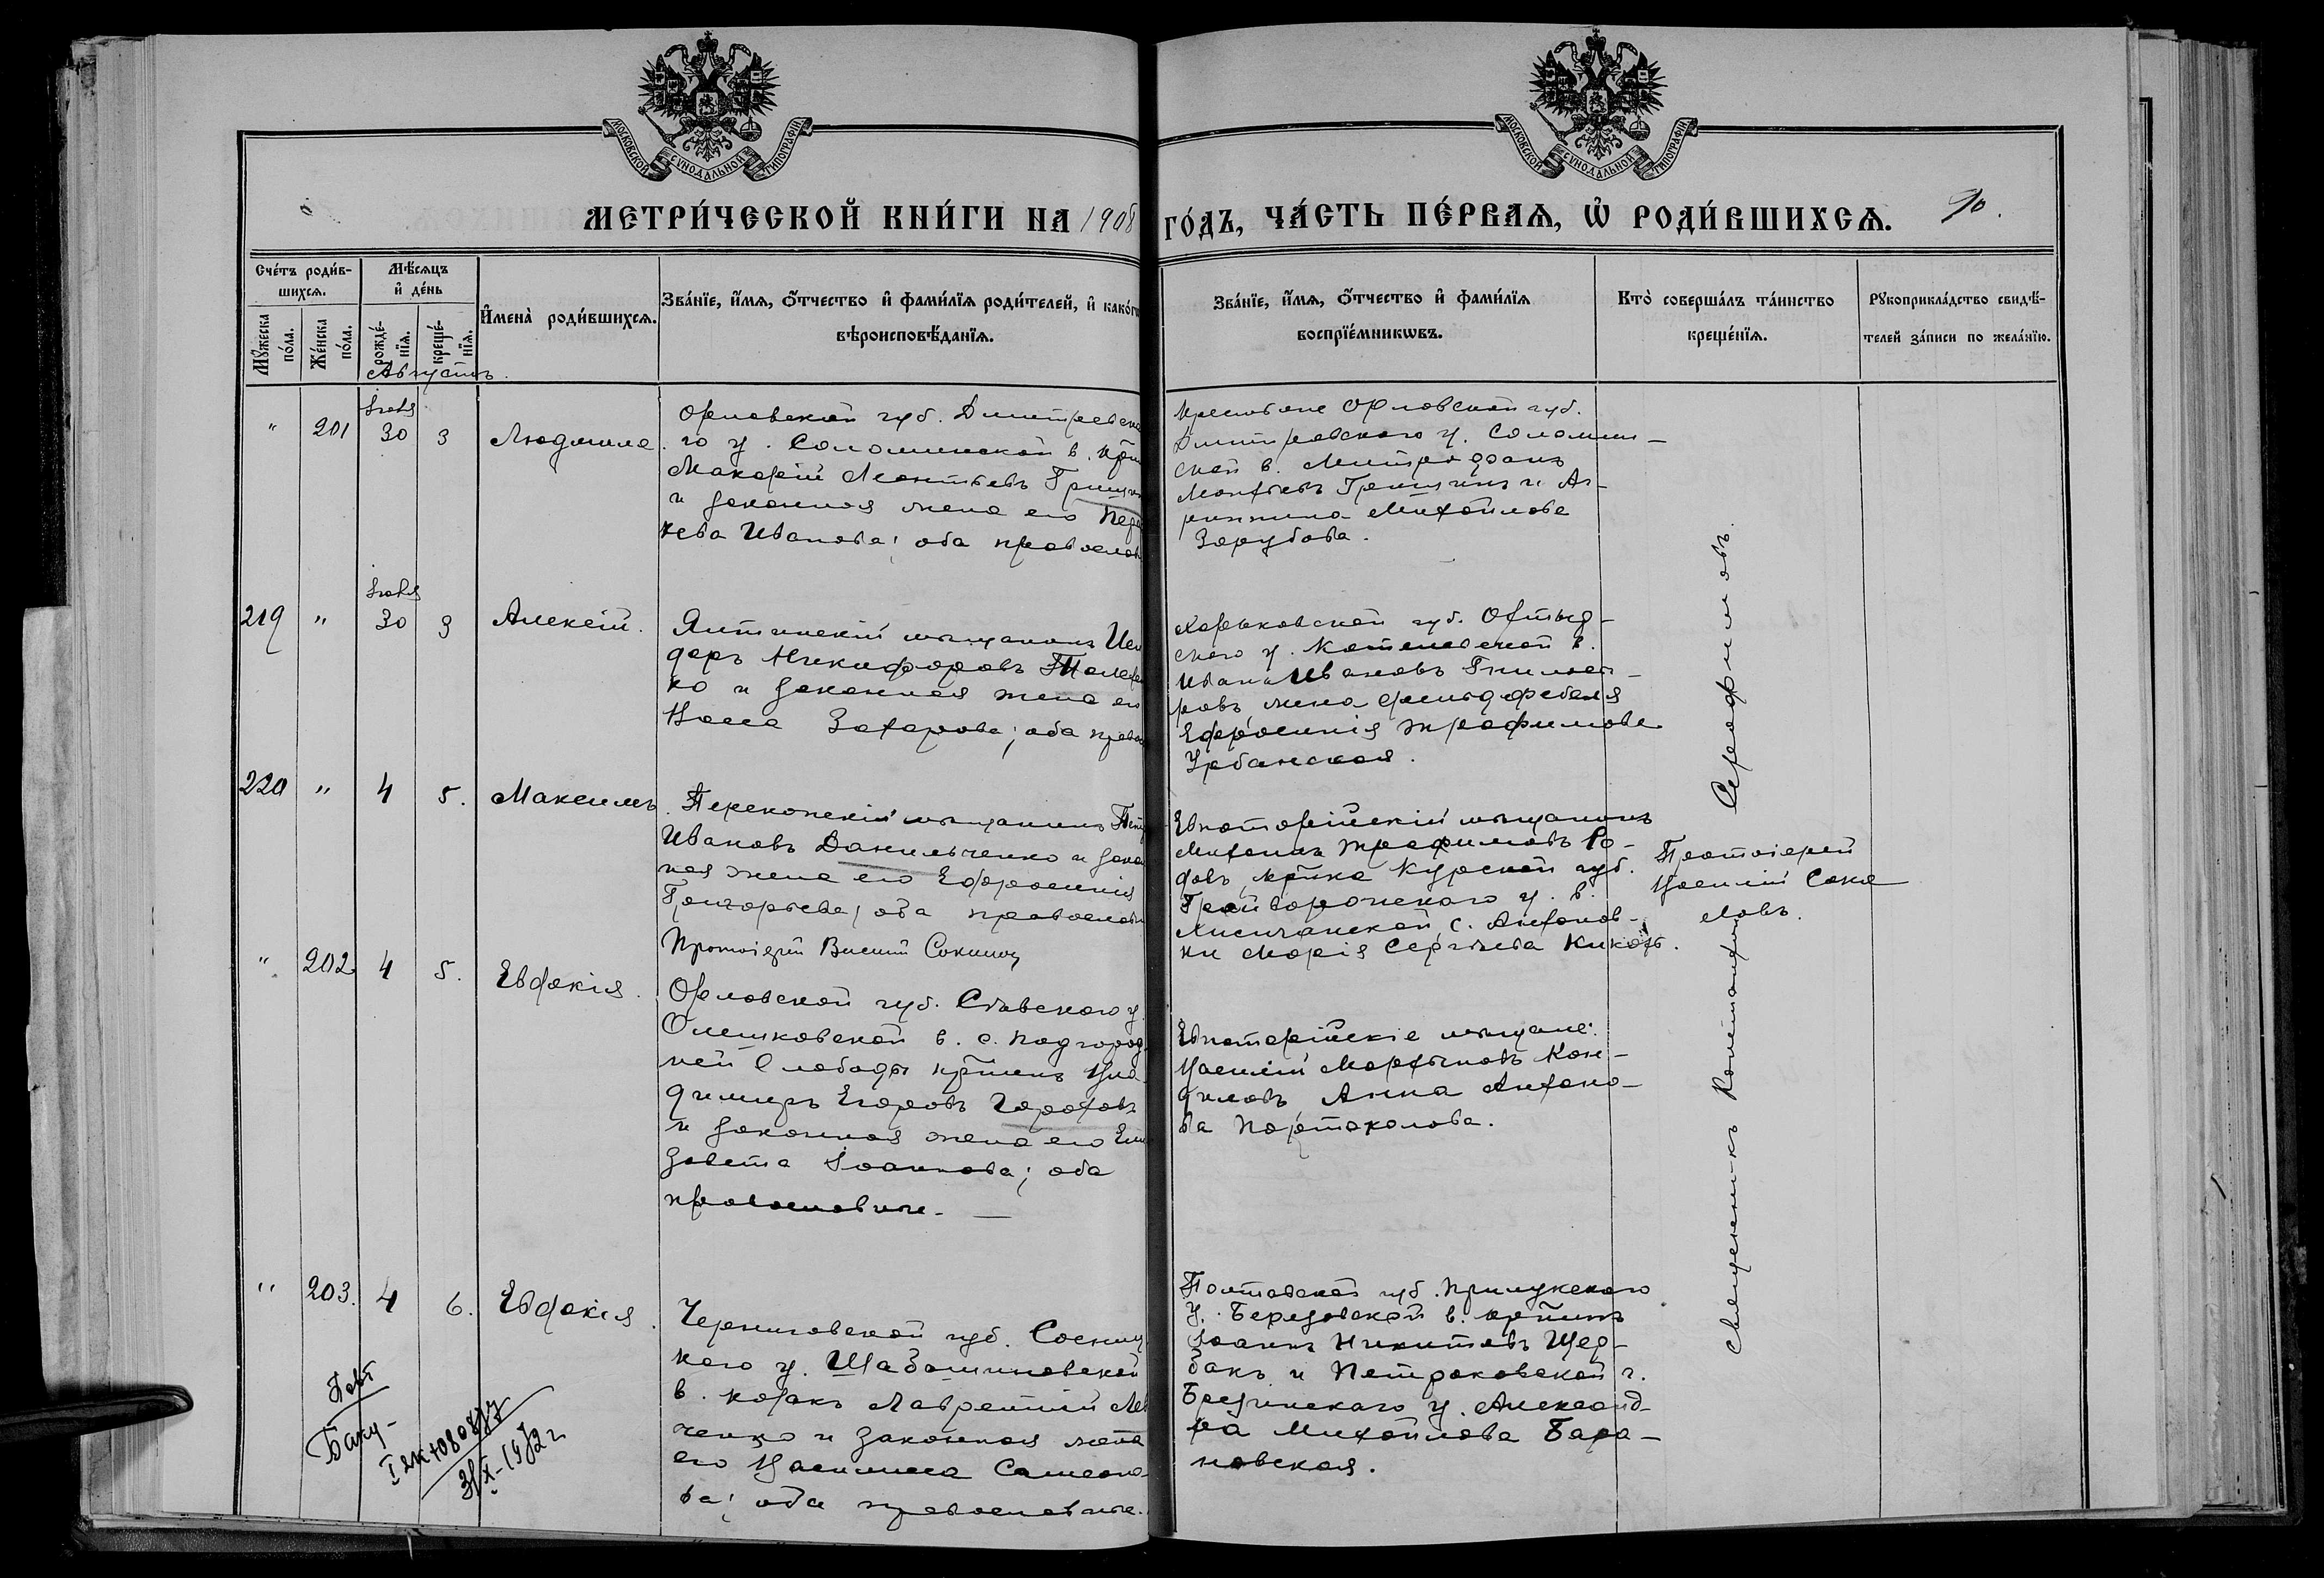 МОСКОВСКОЙ СѴНОДАЛЬНОЙ ТИПОГРАФІИ
МОСКОВСКОЙ СѴНОДАЛЬНОЙ ТИПОГРАФІИ
МЕТРИ́ЧЕСКОЙ КНИ́ГИ НА 1908 ГО́ДЪ, ЧА́СТЬ ПЕ́РВАѦ, Ѡ҆ РОДИ́ВШИХСѦ. 90.
Сче́тъ роди́в-
шихсѧ.
Мꙋ́жеска по́ла.
Же́нска по́ла.
Мѣ́сѧцъ
и҆ де́нь
рожде́-нїѧ.
креще́-нїѧ.
И҆мена̀ роди́вшихсѧ.
Зва́нїе, и҆́мѧ, ѻ҆́тчество и҆ фами́лїѧ роди́телей, и҆ како́гѡ
вѣроисповѣ́данїѧ.
Зва́нїе, и҆́мѧ, ѻ҆́тчество и҆ фами́лїѧ
воспрїе́мникѡвъ.
Кто̀ соверша́лъ та́инство
креще́нїѧ.
Рꙋкоприкла́дство свидѣ́-
телей за́писи по жела́нїю.
Августъ.
" 201 Іюля 30 3 Людмила
Орловской губ. Дмитровска
го у. Соломинской в. кр
Макарій Леонтьевъ Гришин
и законная жена его Пара
кева Иванова; оба православ
Крестьяне Орловской губ.
Дмитровскаго у. Соломин-
ской в. Митрофанъ
Леонтьевъ Гришинъ и Аг-
рипина Михайлова
Зарубова.
219 " Іюля 30 3 Алексій.
Ялтинскій мѣщанинъ Иси
доръ Никифоровъ
ко и законная жена его
Захарова; оба право
Харьковской губ. Ахтыр-
скаго у. Котелевской в.
Иванъ Ивановъ
ровъ жена фельдфебеля
Ефросинія Трофимова
Урбанская.
220 " 4 5. Максимъ
Перекопскій мѣщанинъ Петр
Ивановъ Данильченко и закон
ная жена его Ефросинія
Григорьева; оба православн
Протоіерей Василій
Евпаторійскій мѣщанинъ
Михаилъ Трофимовъ Ро-
довъ, кр-нка Курской губ.
Грайворонскаго у. в.
Лисичанской, с. Антонов-
ки Марія Сергѣева
Протоіерей
Василій Соко
ловъ.
" 202 4 5. Евдокія.
Орловской губ. Сѣвскаго у.
Олешковской в. с. Подгород-
ней Слободы крт-инъ Вла
диміръ Егоровъ Гороховъ
и законная жена его Ели
завета Іоаннова; оба
православные.
Евпаторійскіе мѣщане:
Василій Мартыновъ Кон-
диловъ Анна Антоно-
ва Портокалова.
" 203. 4 6. Евдокія.
Черниговской губ. Сосниц
каго у. Шабалиновской
в. козакъ Лаврентій Ле
ченко и законная жена
его Василиса Самсоно-
ва; оба православные.
Полтавской губ. Прилукскаго
у. Березовской в. крт-инъ
Іоаннъ Никитовъ Щер-
бакъ и Петроковской г.
Брезинскаго у. Александ-
ра Михайлова Бара-
новская.
Священникъ Константинъ Серафимовъ.
Повт
Баку-